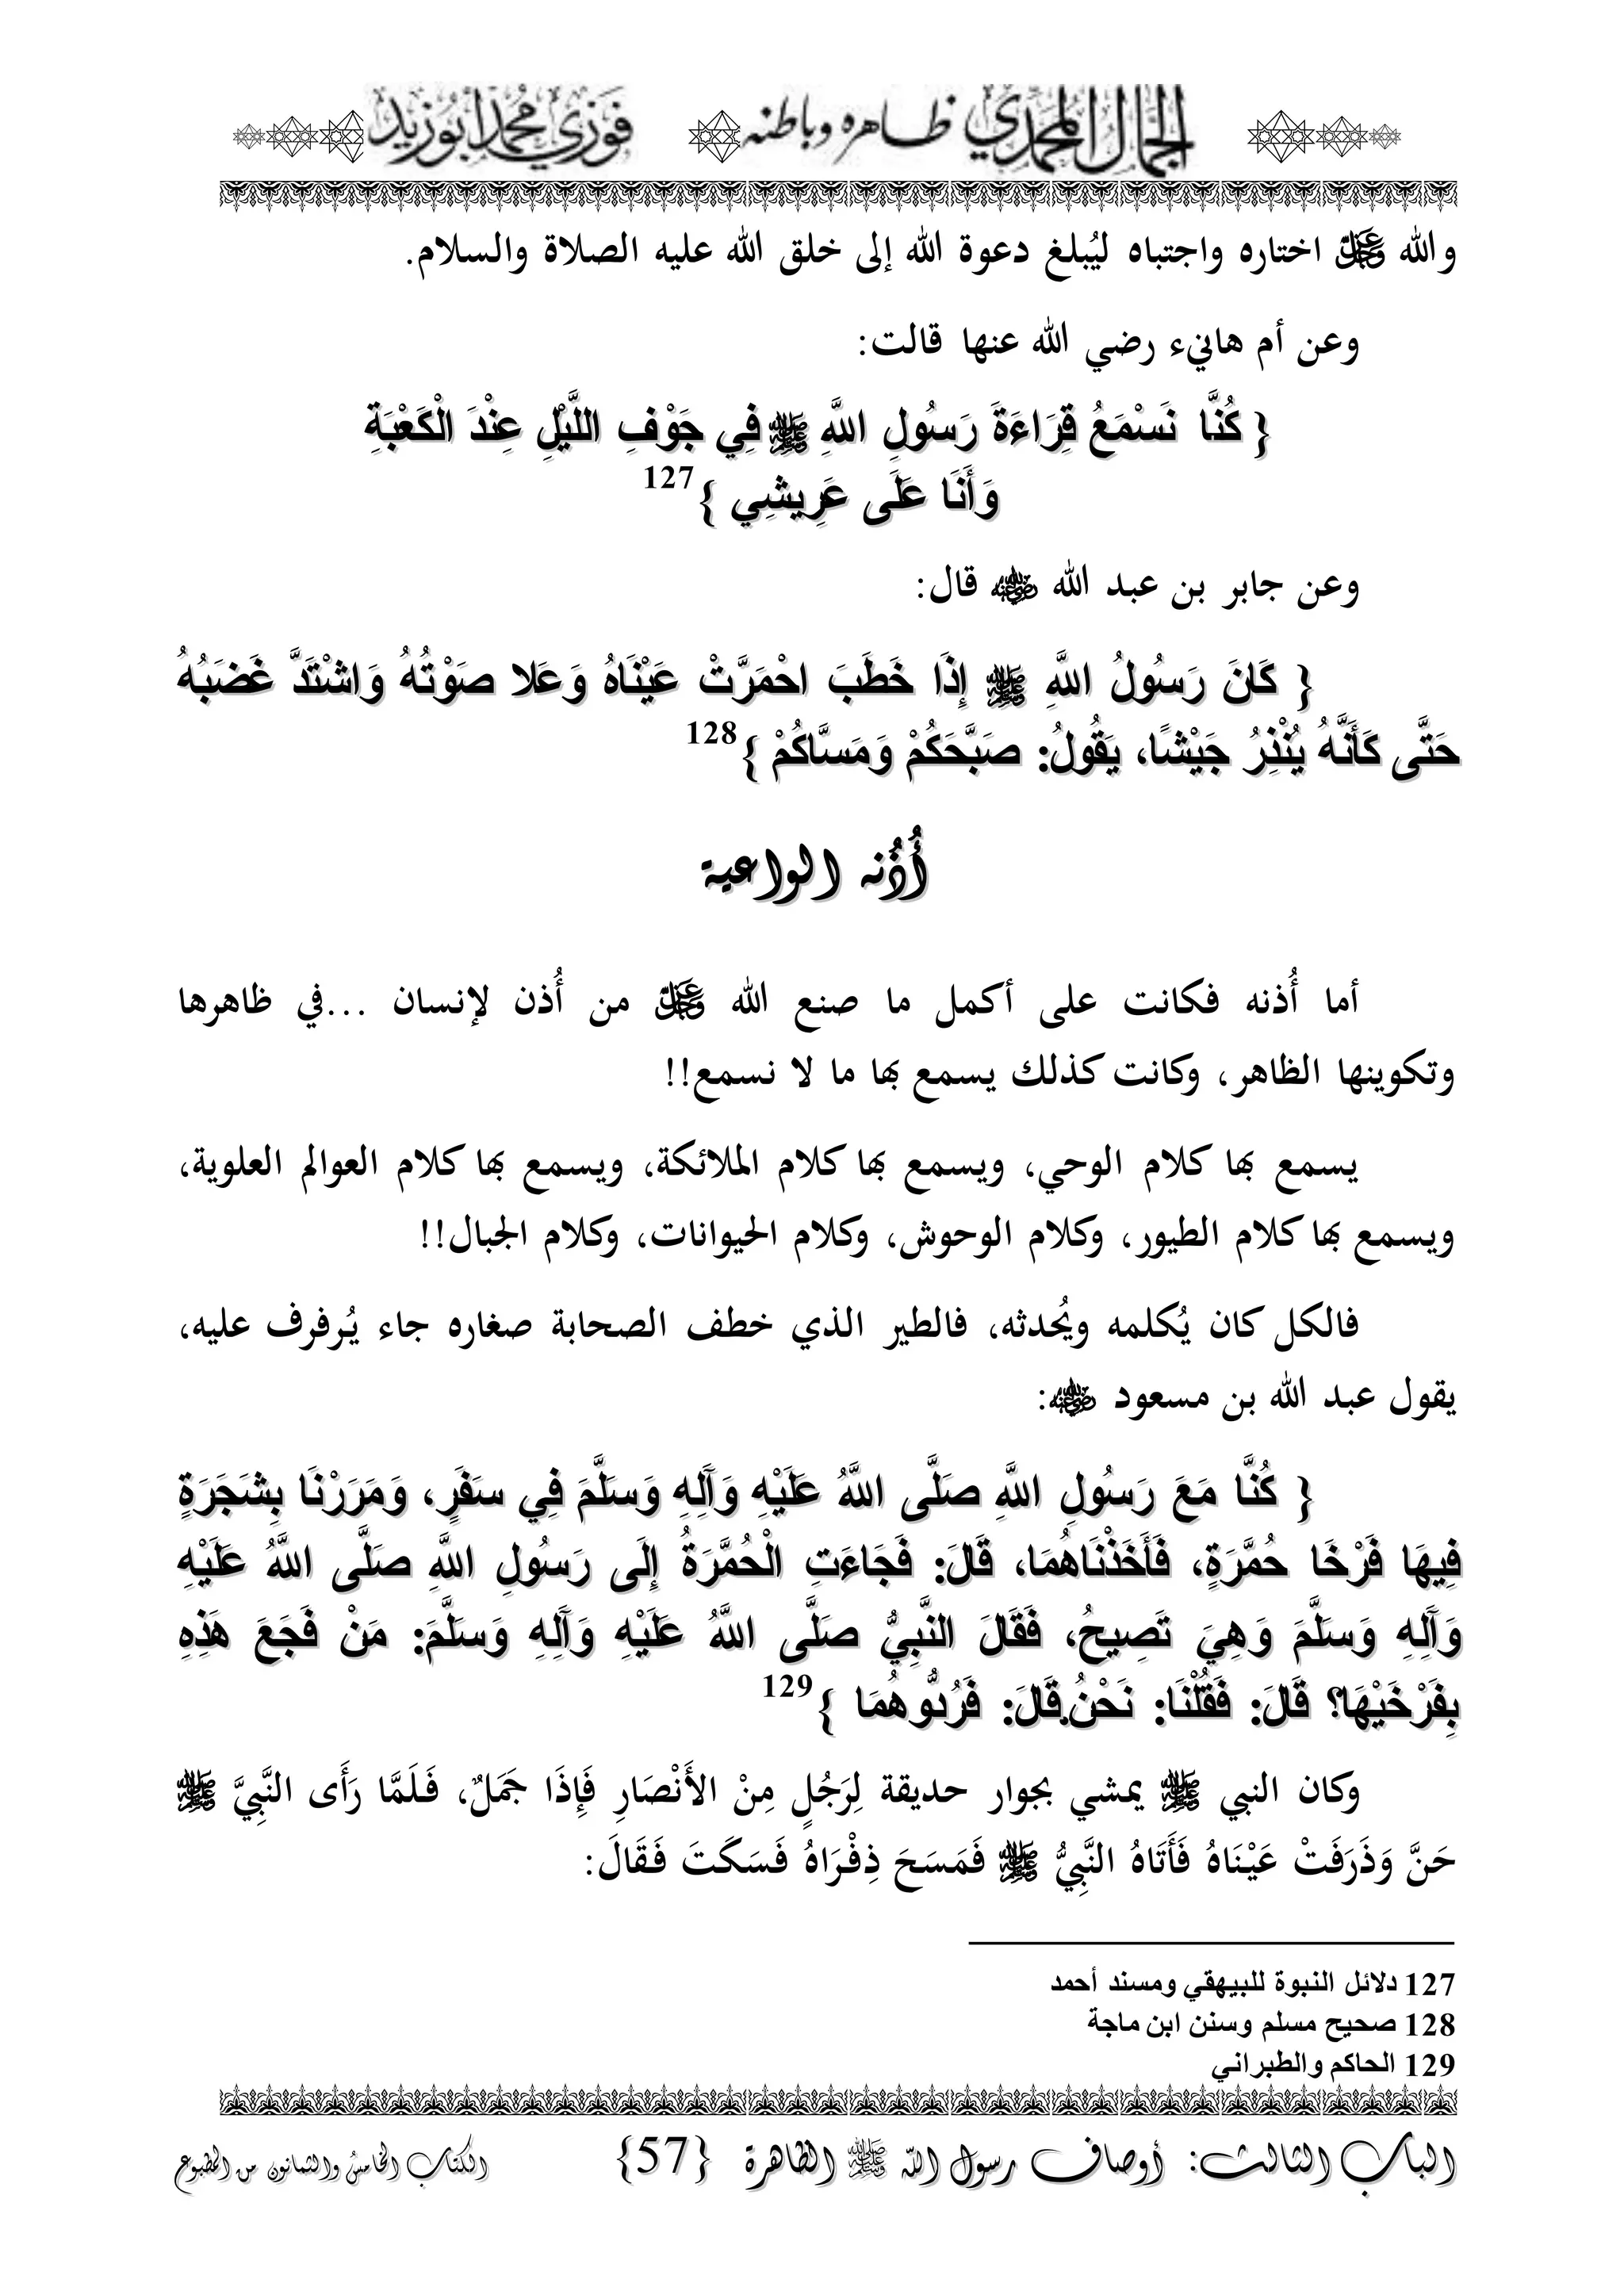 الجمال المحمدي ظاهره وباطنه فوزي محمد أبوزيد
والله ﷿ اختاره واجتباه ليُبلغ دعوة الله إلى خلق الله عليه الصلاة والسلام.
وعن أم هانيء رضي الله عنها قالت:
{ كُنَّا نَسْمَعُ قِرَاءَةَ رَسُولِ اللَّهِ ﷺ فِي جَوْفِ اللَّيْلِ عِنْدَ الْكَعْبَةِ
وَأَنَا عَلَى عَرِيشِي } 127
وعن جابر بن عبد الله رضي الله عنه قال:
{ كَانَ رَسُولُ اللَّهِ ﷺ إِذَا خَطَبَ احْمَرَّتْ عَيْنَاهُ وَعَلا صَوْتُهُ وَاشْتَدَّ غَضَبُهُ
حَتَّى كَأَنَّهُ يُنْذِرُ جَيْشًا، يَقُولُ: صَبَّحَكُمْ وَمَسَّاكُمْ } 128
أُذُنه الواعية
أما أُذنه فكانت على أكمل ما صنع الله ﷿ من أُذن لإنسان ...في ظاهرها
وتكوينها الظاهر، وكانت كذلك يسمع بها ما لا نسمع!!
يسمع بها كلام الوحي، ويسمع بها كلام الملائكة، ويسمع بها كلام العوالم العلوية،
ويسمع بها كلام الطيور، وكلام الوحوش، وكلام الحيوانات، وكلام الجبال!!
فالكل كان يُكلمه ويُحدثه، فالطير الذي خطف الصحابة صغاره جاء يُرفرف عليه،
يقول عبد الله بن مسعود رضي الله عنه:
{ كُنَّا مَعَ رَسُولِ اللَّهِ صَلَّى اللَّهُ عَلَيْهِ وَآلِهِ وَسَلَّمَ فِي سَفَرٍ، وَمَرَرْنَا بِشَجَرَةٍ
فِيهَا فَرْخَا حُمَّرَةٍ، فَأَخَذْنَاهُمَا، قَالَ: فَجَاءَتِ الْحُمَّرَةُ إِلَى رَسُولِ اللَّهِ صَلَّى اللَّهُ عَلَيْهِ
وَآلِهِ وَسَلَّمَ وَهِيَ تَصِيحُ، فَقَالَ النَّبِيُّ صَلَّى اللَّهُ عَلَيْهِ وَآلِهِ وَسَلَّمَ: مَنْ فَجَعَ هَذِهِ
بِفَرْخَيْهَا؟ قَالَ: فَقُلْنَا: نَحْنُ.قَالَ: فَرُدُّوهُمَا } 129
وكان النبي ﷺ يمشي بجوار حديقة لِرَجُلٍ مِنْ الأَنْصَارِ فَإِذَا جَمَلٌ، فَلَمَّا رَأَى النَّبِيَّ ﷺ
حَنَّ وَذَرَفَتْ عَيْنَاهُ فَأَتَاهُ النَّبِيُّ ﷺ فَمَسَحَ ذِفْرَاهُ فَسَكَتَ فَقَالَ:
127 دلائل النبوة للبيهقي ومسند أحمد
128 صحيح مسلم وسنن ابن ماجة
129 الحاكم والطبراني
الباب الثالث: أوصاف رسول الله ﷺ الظاهرة {57} الكتاب الخامس والثمانون من المطبوع